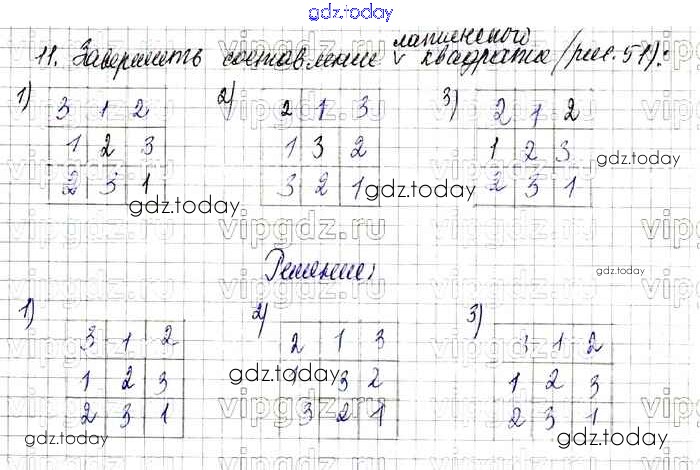 gdz.today
латинского
11. Завершить составление ∨ квадрата (рис. 51):
1) 2) 3)
3 1 2 2 1 3 2 1 2
1 2 3 1 3 2 1 2 3 gdz.today
2 3 1 3 2 1 2 3 1
gdz.today gdz.today
Решение:
gdz.today
1) 2) 3)
3 1 2 2 1 3 3 1 2
1 2 3 3 2 1 2 3
gdz.today
2 3 1 3 2 1 2 3 1
gdz.today gdz.today
vipgdz.ru